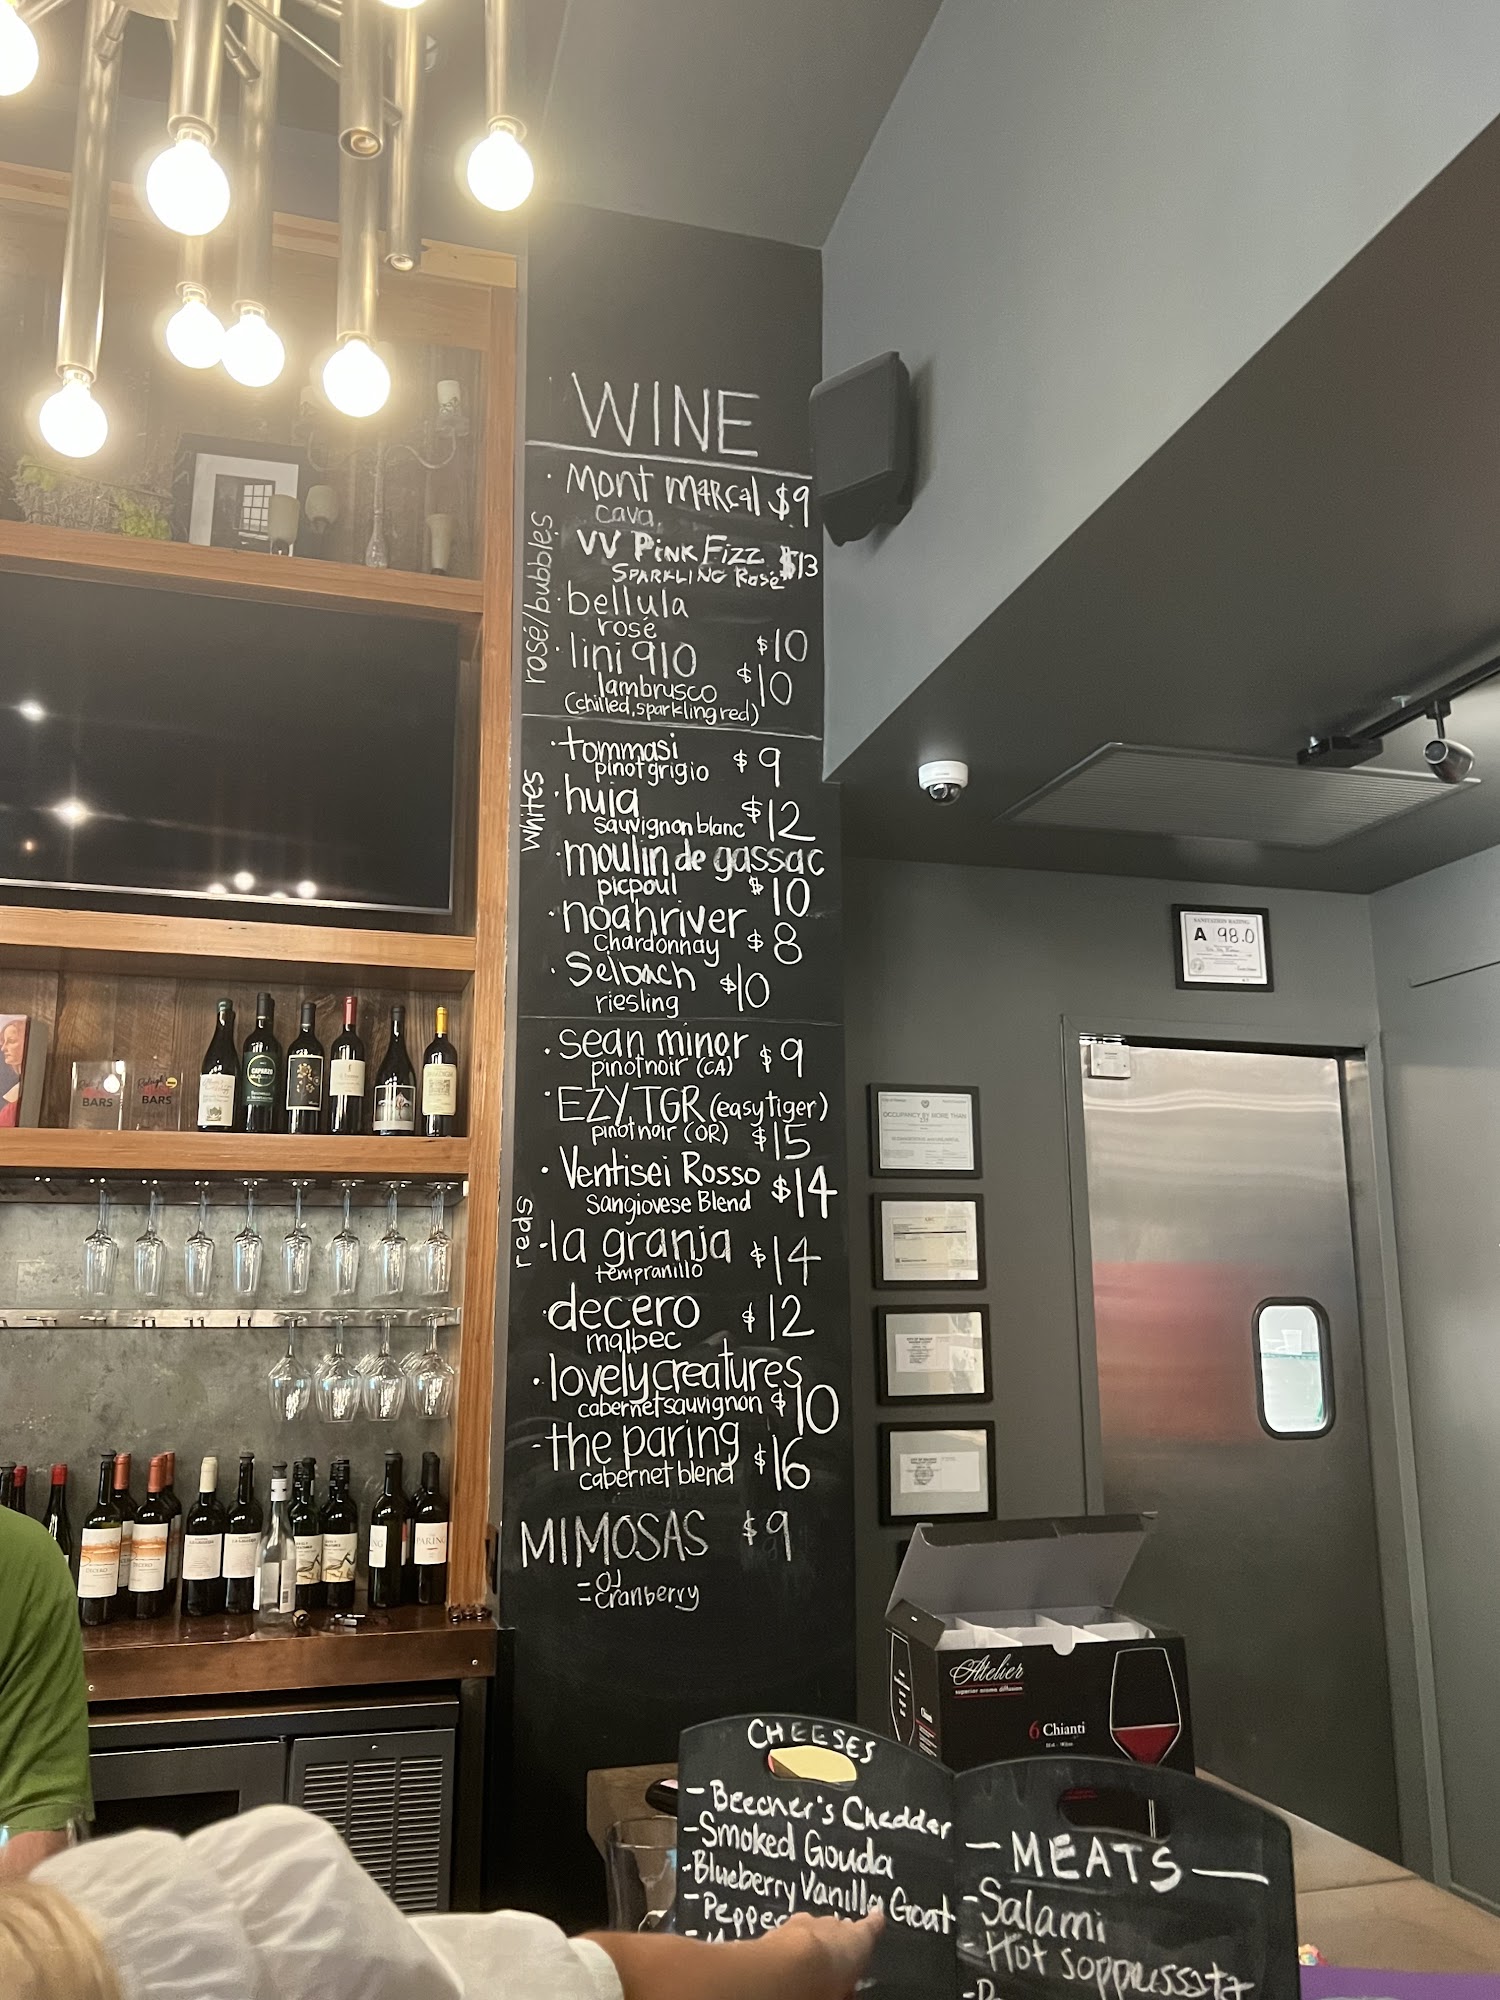 WINE
rosé/bubbles
· Mont Marcal $9
cava
VV Pink Fizz $13
Sparkling Rosé
· bellula
rosé $10
· lini 910 $10
lambrusco
(chilled, sparkling red)
whites
· tommasi $9
pinot grigio
· huia $12
sauvignon blanc
· moulin de gassac
picpoul $10
· noahriver $8
Chardonnay
· Selbach $10
riesling
reds
· sean minor $9
pinot noir (CA)
· EZY TGR (easy tiger)
pinot noir (OR) $15
· Ventisei Rosso $14
Sangiovese Blend
- la granja $14
tempranillo
· decero $12
malbec
· lovely creatures
cabernet sauvignon $10
- the paring $16
cabernet blend
MIMOSAS $9
- OJ
- Cranberry
SANITATION RATING
A 98.0
OCCUPANCY BY MORE THAN
BARS
BARS
DECERO
DECERO
PARING
Atelier
superior aroma diffusion
6 Chianti
CHEESES
- Beecher's Cheddar
- Smoked Gouda
- Blueberry Vanilla Goat
- Pepper
- MEATS -
- Salami
- Hot Soppressata